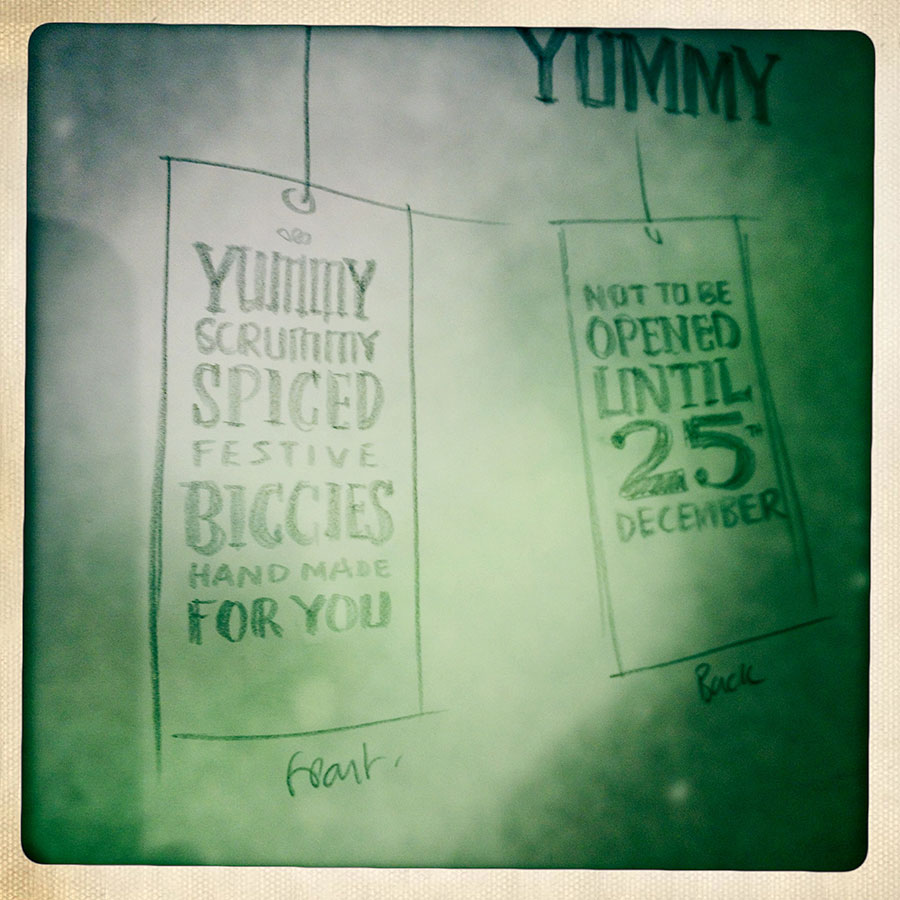 YUMMY
YUMMY
SCRUMMY
SPICED
FESTIVE
BICCIES
HAND MADE
FOR YOU
Front.
NOT TO BE
OPENED
UNTIL
25TH
DECEMBER
Back